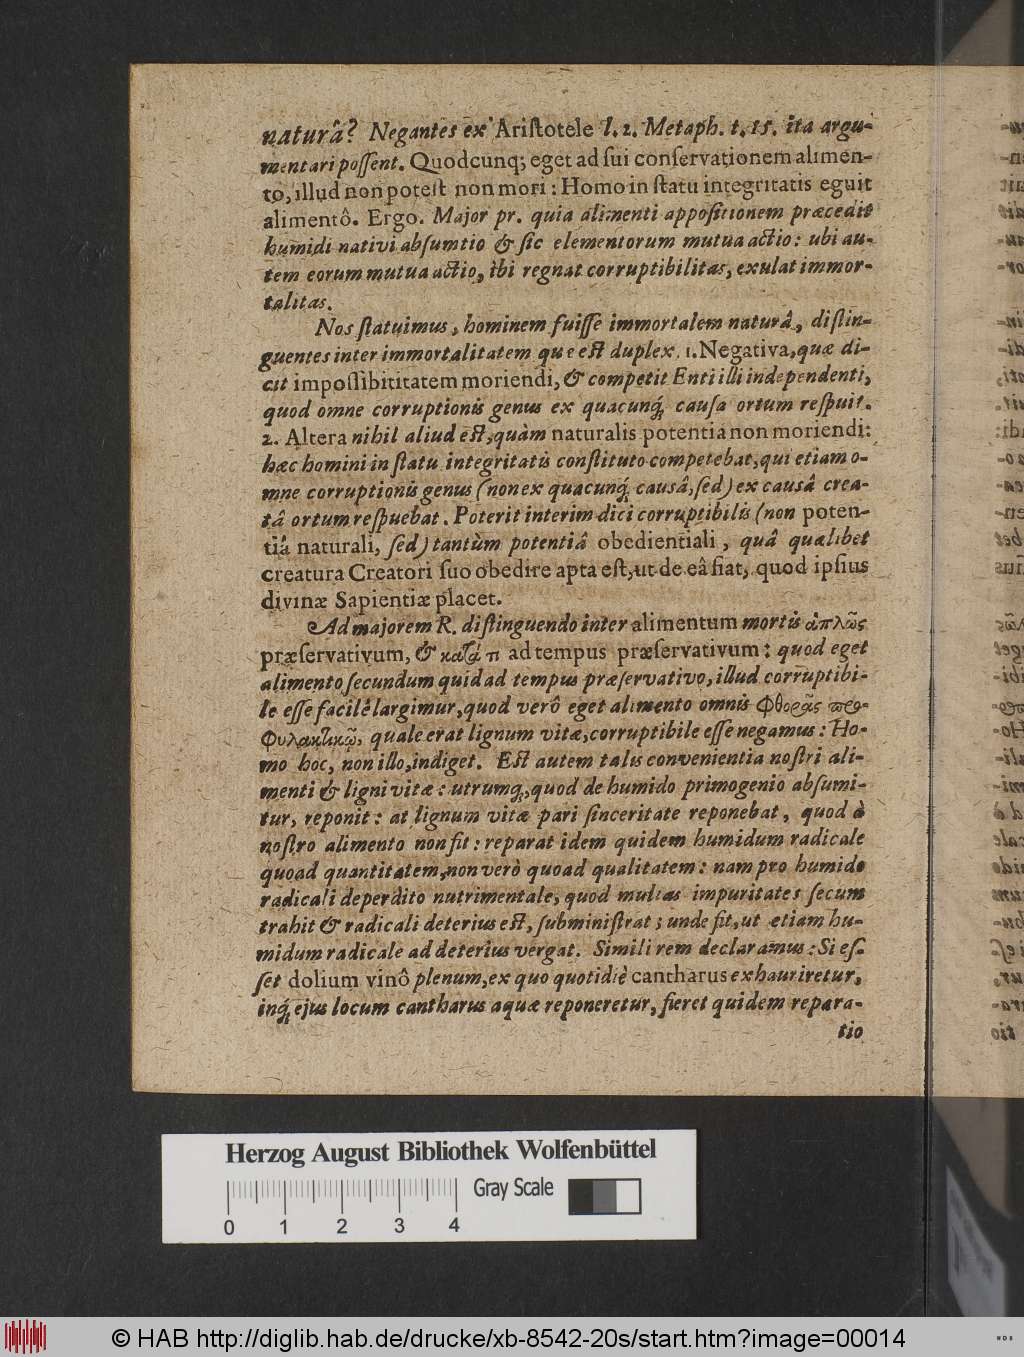 naturâ? Negantes ex Ariſtotele l. 2. Metaph. t. 15. ita argu-
mentari poſſent. Quodcunq; eget ad ſui conſervationem alimen-
to, illud non poteſt non mori: Homo in ſtatu integritatis eguit
alimentô. Ergo. Major pr. quia alimenti appoſitionem præcedit
humidi nativi abſumtio & ſic elementorum mutua actio: ubi au-
tem eorum mutua actio, ibi regnat corruptibilitas, exulat immor-
talitas.
Nos ſtatuimus, hominem fuiſſe immortalem naturâ, diſtin-
guentes inter immortalitatem que eſt duplex. 1. Negativa, quæ di-
cit impoſſibititatem moriendi, & competit Enti illi independenti,
quod omne corruptionis genus ex quacunq́; cauſa ortum reſpuit.
2. Altera nihil aliud eſt, quàm naturalis potentia non moriendi:
hæc homini in ſtatu integritatis conſtituto competebat, qui etiam o-
mne corruptionis genus (non ex quacunq́; causâ, ſed) ex causâ crea-
tâ ortum reſpuebat. Poterit interim dici corruptibilis (non poten-
tiâ naturali, ſed) tantùm potentiâ obedientiali, quâ quælibet
creatura Creatori ſuo obedire apta eſt, ut de eâ fiat, quod ipſius
divinæ Sapientiæ placet.
Ad majorem R. diſtinguendo inter alimentum mortis ἁπλῶς
præſervativum, & κατά τι ad tempus præſervativum: quod eget
alimento ſecundum quid ad tempus præſervativo, illud corruptibi-
le eſſe facilè largimur, quod verô eget alimento omnis φθορᾶς προ-
φυλακτικῷ, quale erat lignum vitæ, corruptibile eſſe negamus: Ho-
mo hoc, non illo, indiget. Eſt autem talis convenientia noſtri ali-
menti & ligni vitæ: utrumq́;, quod de humido primogenio abſumi-
tur, reponit: at lignum vitæ pari ſinceritate reponebat, quod à
noſtro alimento non fit: reparat idem quidem humidum radicale
quoad quantitatem, non verò quoad qualitatem: nam pro humido
radicali deperdito nutrimentale, quod multas impuritates ſecum
trahit & radicali deterius eſt, ſubminiſtrat; unde fit, ut ætiam hu-
midum radicale ad deterius vergat. Simili rem declaramus: Si eſ-
ſet dolium vinô plenum, ex quo quotidiè cantharus exhauriretur,
inq́; ejus locum cantharus aquæ reponeretur, fieret quidem repara-
tio
Herzog August Bibliothek Wolfenbüttel
Gray Scale
0 1 2 3 4
© HAB http://diglib.hab.de/drucke/xb-8542-20s/start.htm?image=00014